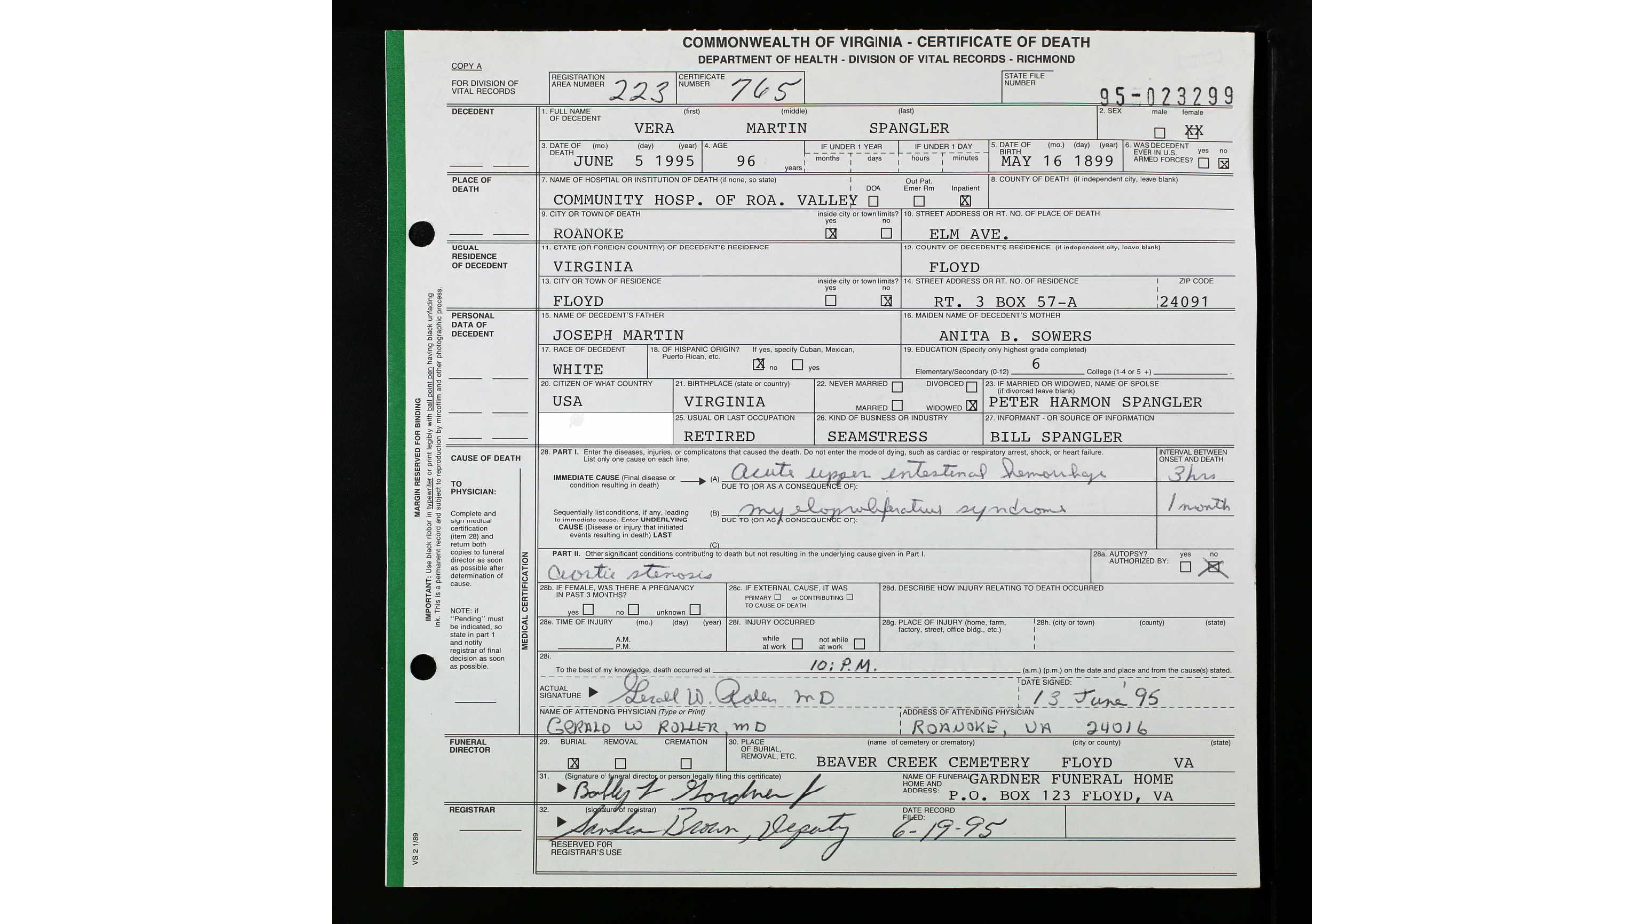 COMMONWEALTH OF VIRGINIA - CERTIFICATE OF DEATH
DEPARTMENT OF HEALTH - DIVISION OF VITAL RECORDS - RICHMOND
COPY A
FOR DIVISION OF VITAL RECORDS
REGISTRATION AREA NUMBER 223
CERTIFICATE NUMBER 765
STATE FILE NUMBER 95-023299
DECEDENT
1. FULL NAME OF DECEDENT (first) (middle) (last)
VERA MARTIN SPANGLER
2. SEX male female XX
3. DATE OF DEATH (mo.) (day) (year) JUNE 5 1995
4. AGE 96 years
IF UNDER 1 YEAR months days
IF UNDER 1 DAY hours minutes
5. DATE OF BIRTH (mo.) (day) (year) MAY 16 1899
6. WAS DECEDENT EVER IN U.S. ARMED FORCES? yes no X
PLACE OF DEATH
7. NAME OF HOSPITAL OR INSTITUTION OF DEATH (if none, so state)
COMMUNITY HOSP. OF ROA. VALLEY
DOA Out Pat. Emer Rm Inpatient X
8. COUNTY OF DEATH (if independent city, leave blank)
9. CITY OR TOWN OF DEATH inside city or town limits? yes X no
ROANOKE
10. STREET ADDRESS OR RT. NO. OF PLACE OF DEATH
ELM AVE.
USUAL RESIDENCE OF DECEDENT
11. STATE (OR FOREIGN COUNTRY) OF DECEDENT'S RESIDENCE
VIRGINIA
12. COUNTY OF DECEDENT'S RESIDENCE (if independent city, leave blank)
FLOYD
13. CITY OR TOWN OF RESIDENCE inside city or town limits? yes no X
FLOYD
14. STREET ADDRESS OR RT. NO. OF RESIDENCE ZIP CODE
RT. 3 BOX 57-A 24091
PERSONAL DATA OF DECEDENT
15. NAME OF DECEDENT'S FATHER
JOSEPH MARTIN
16. MAIDEN NAME OF DECEDENT'S MOTHER
ANITA B. SOWERS
17. RACE OF DECEDENT
WHITE
18. OF HISPANIC ORIGIN? If yes, specify Cuban, Mexican, Puerto Rican, etc. X no yes
19. EDUCATION (Specify only highest grade completed)
Elementary/Secondary (0-12) 6 College (1-4 or 5 +)
20. CITIZEN OF WHAT COUNTRY
USA
21. BIRTHPLACE (state or country)
VIRGINIA
22. NEVER MARRIED DIVORCED MARRIED WIDOWED X
23. IF MARRIED OR WIDOWED, NAME OF SPOUSE (if divorced leave blank)
PETER HARMON SPANGLER
25. USUAL OR LAST OCCUPATION
RETIRED
26. KIND OF BUSINESS OR INDUSTRY
SEAMSTRESS
27. INFORMANT - OR SOURCE OF INFORMATION
BILL SPANGLER
CAUSE OF DEATH
TO PHYSICIAN:
Complete and sign medical certification (item 28) and return both copies to funeral director as soon as possible after determination of cause.
NOTE: if "Pending" must be indicated, so state in part 1 and notify registrar of final decision as soon as possible.
MEDICAL CERTIFICATION
28. PART I. Enter the diseases, injuries, or complicatons that caused the death. Do not enter the mode of dying, such as cardiac or respiratory arrest, shock, or heart failure. List only one cause on each line.
INTERVAL BETWEEN ONSET AND DEATH
IMMEDIATE CAUSE (Final disease or condition resulting in death) (A) Acute upper intestinal hemorrhage 3 hrs
DUE TO (OR AS A CONSEQUENCE OF):
Sequentially list conditions, if any, leading to immediate cause. Enter UNDERLYING CAUSE (Disease or injury that initiated events resulting in death) LAST
(B) myeloproliferative syndrome 1 month
DUE TO (OR AS A CONSEQUENCE OF):
(C)
PART II. Other significant conditions contributing to death but not resulting in the underlying cause given in Part I.
Aortic stenosis
28a. AUTOPSY? AUTHORIZED BY: yes no X
28b. IF FEMALE, WAS THERE A PREGNANCY IN PAST 3 MONTHS? yes no unknown
28c. IF EXTERNAL CAUSE, IT WAS PRIMARY or CONTRIBUTING TO CAUSE OF DEATH
28d. DESCRIBE HOW INJURY RELATING TO DEATH OCCURRED
28e. TIME OF INJURY (mo.) (day) (year) A.M. P.M.
28f. INJURY OCCURRED while at work not while at work
28g. PLACE OF INJURY (home, farm, factory, street, office bldg., etc.)
28h. (city or town) (county) (state)
28i. To the best of my knowledge, death occurred at 10: P.M. (a.m.) (p.m.) on the date and place and from the cause(s) stated.
ACTUAL SIGNATURE Gerald W. Roller MD
DATE SIGNED: 13 June '95
NAME OF ATTENDING PHYSICIAN (Type or Print)
GERALD W ROLLER, MD
ADDRESS OF ATTENDING PHYSICIAN
ROANOKE, VA 24016
FUNERAL DIRECTOR
29. BURIAL X REMOVAL CREMATION
30. PLACE OF BURIAL, REMOVAL, ETC. (name of cemetery or crematory) (city or county) (state)
BEAVER CREEK CEMETERY FLOYD VA
31. (Signature of funeral director or person legally filing this certificate)
NAME OF FUNERAL HOME AND ADDRESS: GARDNER FUNERAL HOME
P.O. BOX 123 FLOYD, VA
REGISTRAR
32. (signature of registrar)
Sandra Brown, Deputy
DATE RECORD FILED: 6-19-95
RESERVED FOR REGISTRAR'S USE
MARGIN RESERVED FOR BINDING
IMPORTANT: Use black ribbon in typewriter or print legibly with ball point pen having black unfading ink. This is a permanent record and subject to reproduction by microfilm and other photographic process.
VS 2 1/89